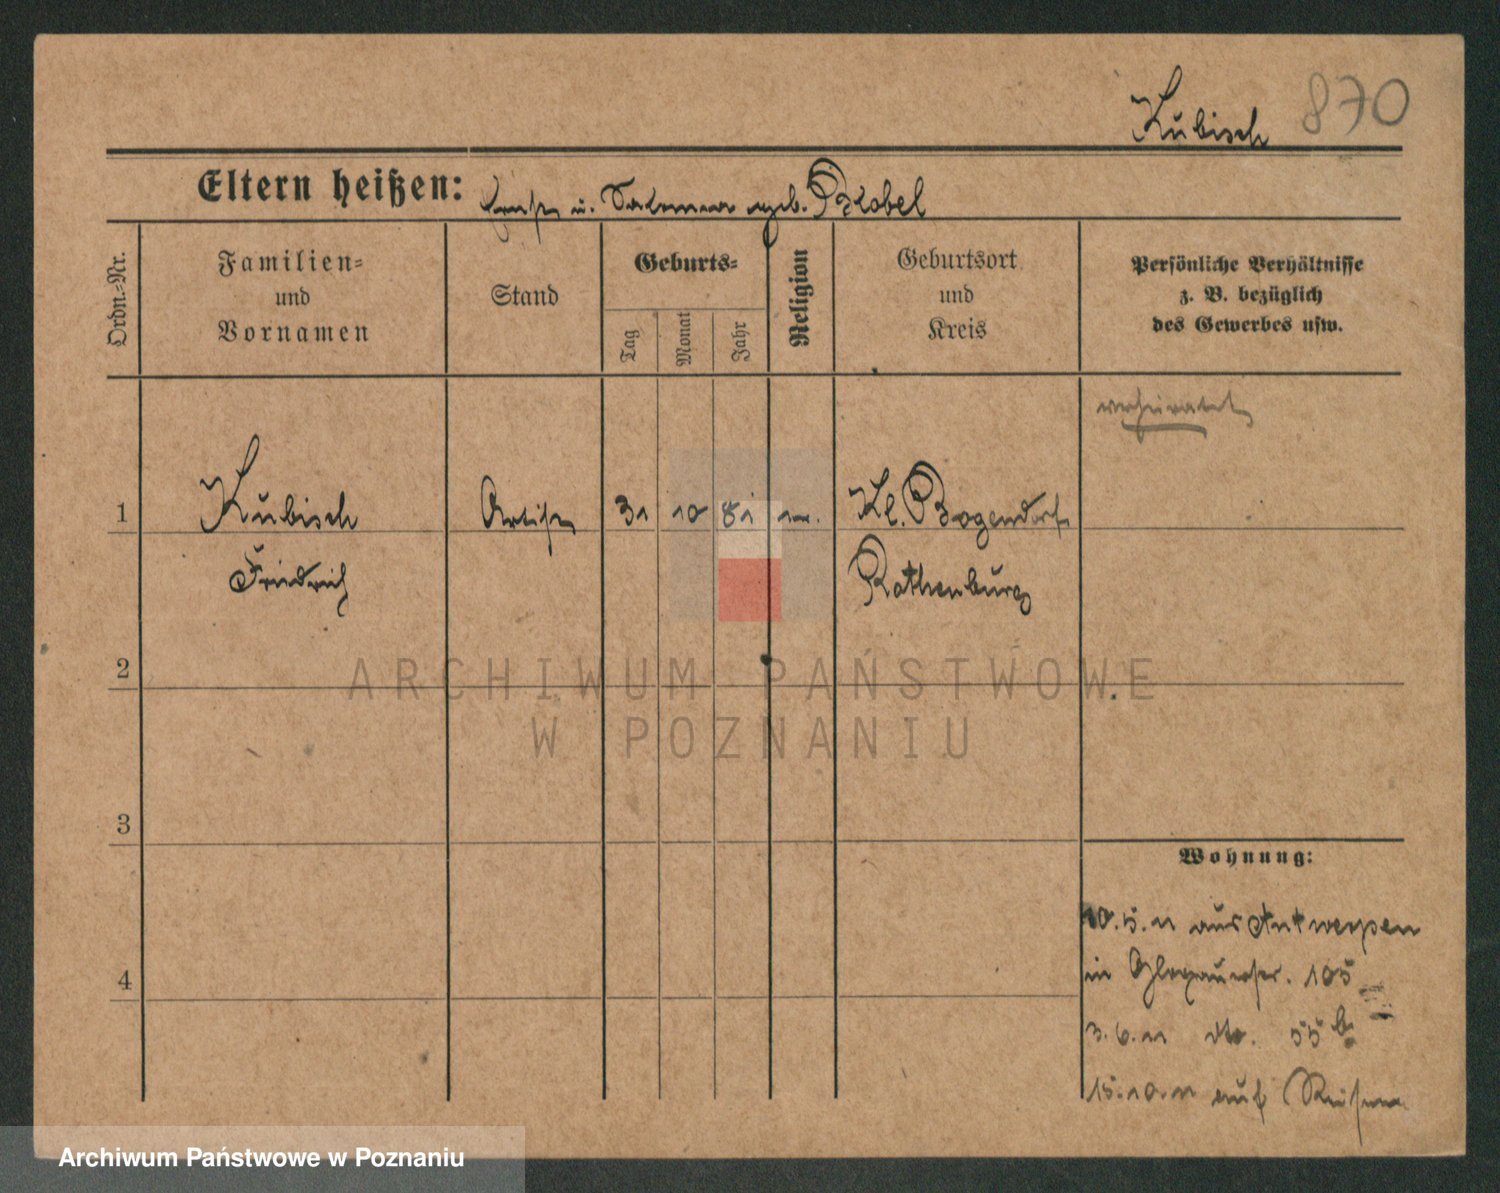 Kubisch 870
Eltern heißen: Ernst u. Salomea geb. Przobel
Ordn.-Nr.
Familien-
und
Vornamen
Stand
Geburts-
Tag
Monat
Jahr
Religion
Geburtsort
und
Kreis
Persönliche Verhältnisse
z. B. bezüglich
des Gewerbes usw.
verheiratet
1 Kubisch Artist 31 10 81 Kl. Bogendorf
Friedrich Rothenburg
2
ARCHIWUM PAŃSTWOWE
W POZNANIU
3
Wohnung:
10.5.11 aus Antwerpen
in Glogauerstr. 105
4
3.6.11 dto. 55 b
15.10.11 auf Reisen
Archiwum Państwowe w Poznaniu